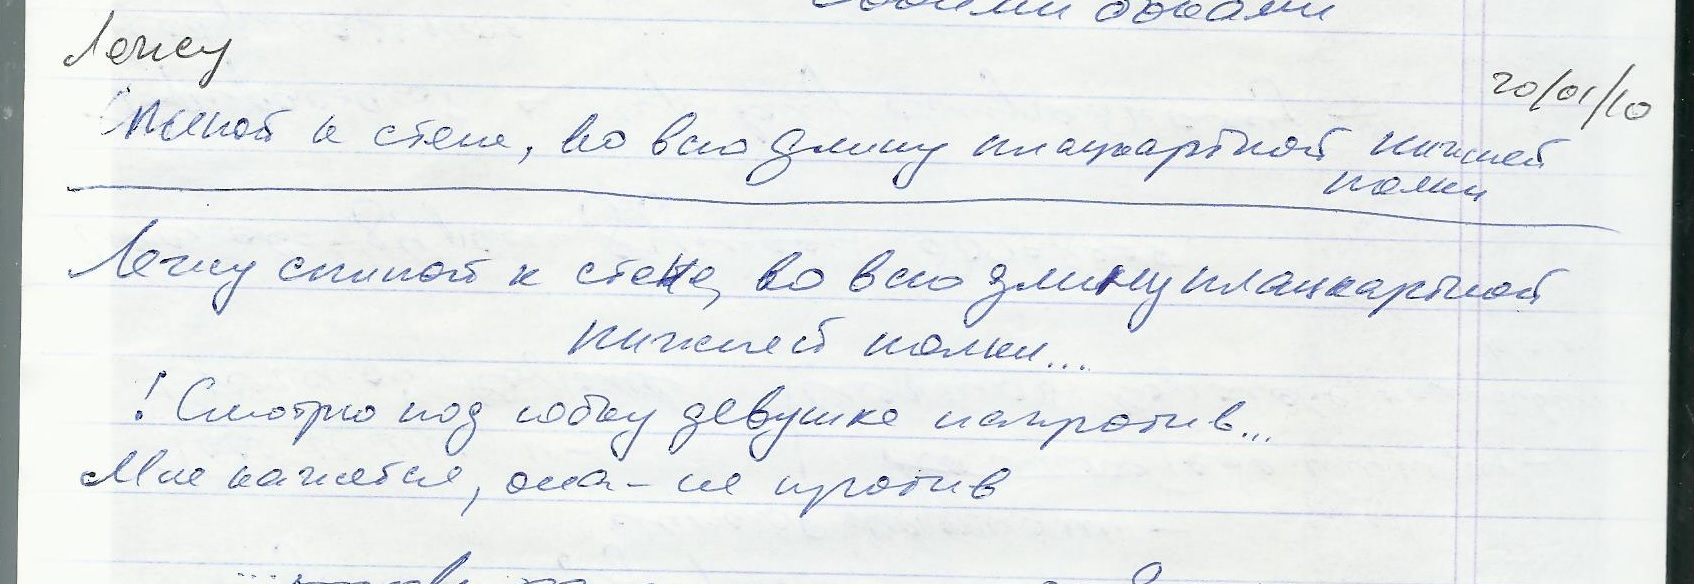 своими боками
Лежу
20/01/10
Спиной к стене, во всю длину плацкартной нижней
полки
Лежу спиной к стене, во всю длину плацкартной
нижней полки...
! Смотрю под юбку девушке напротив...
Мне кажется, она - не против